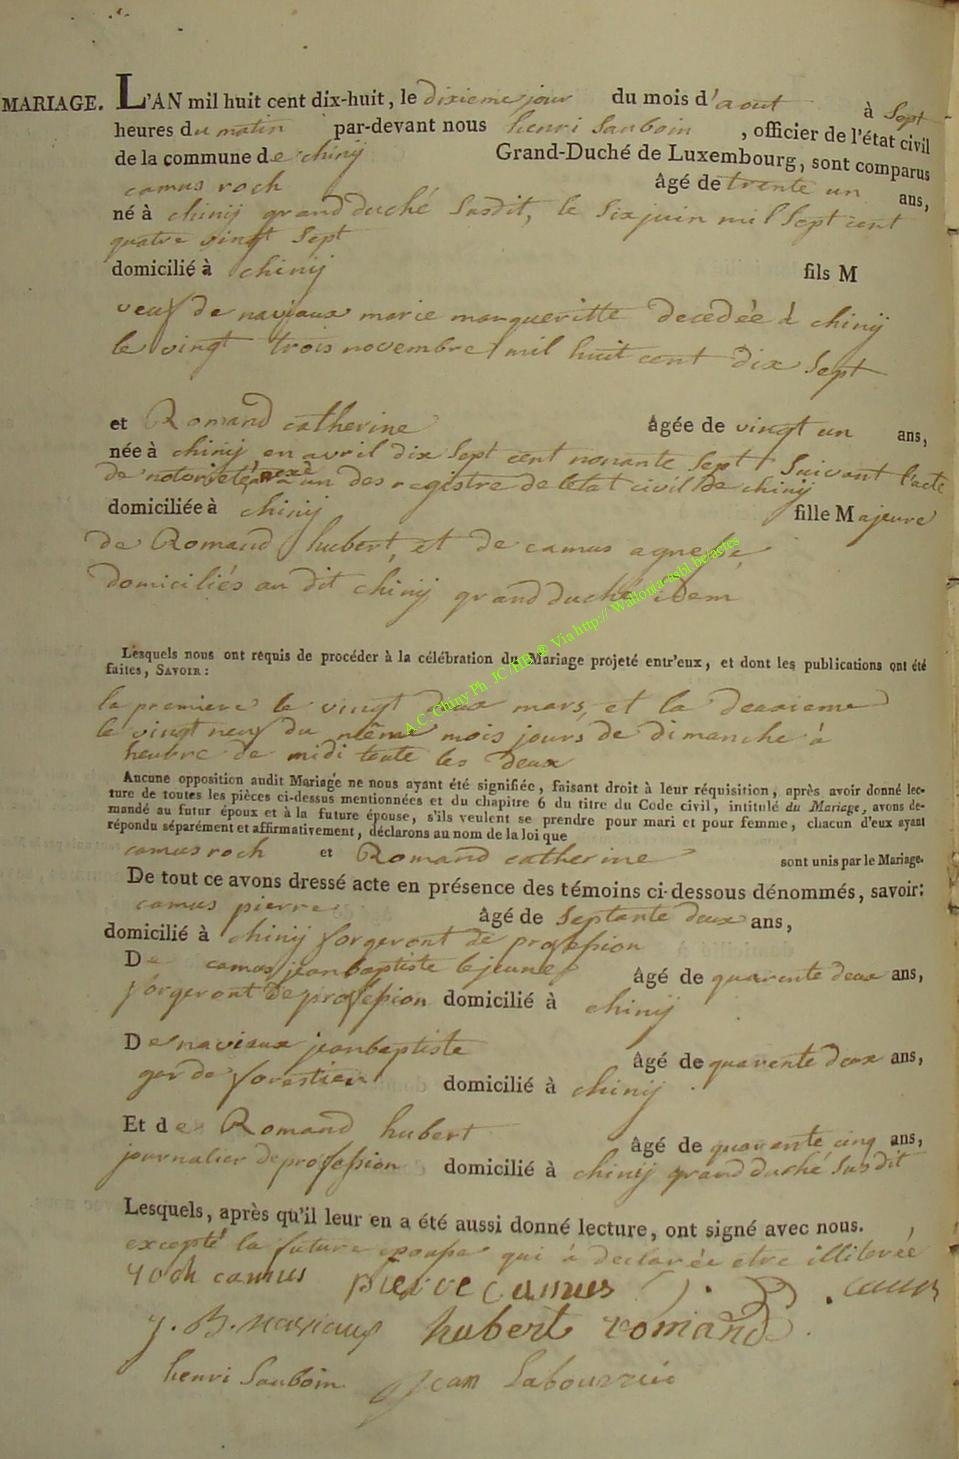 MARIAGE. L'AN mil huit cent dix-huit, le dixieme jour du mois d'aout à sept
heures du matin par-devant nous henri Sauboin, officier de l'état civil
de la commune de chinij Grand-Duché de Luxembourg, sont comparus
camus roch âgé de trente un ans,
né à chinij grand duché susdit, le six juin mil sept cent
quatre vingt sept
domicilié à chinij fils M
veuf de naviaux marie margueritte decedée à chinij
le vingt trois novembre mil huit cent dix sept
et Romand catherine âgée de vingt un ans,
née à chinij en avril dix sept cent nonante sept suivant l'acte
de notorieté un des registre de l'etat civil de chinij
domiciliée à chinij fille Majeure
de Romand hubert, et de camus agnes,
domiciliés au dit chinij grand duché idem
Lesquels nous ont requis de procéder à la célébration du Mariage projeté entr'eux, et dont les publications ont été
faites, SAVOIR:
la premiere le vingt deux mars, et la deuxieme
le vingt neuf du même mois jours de dimanche à
heubre de midi toute les deux
Aucune opposition audit Mariage ne nous ayant été signifiée, faisant droit à leur réquisition, après avoir donné lec-
ture de toutes les pièces ci-dessus mentionnées et du chapitre 6 du titre du Code civil, intitulé du Mariage, avons de-
mandé au futur époux et à la future épouse, s'ils veulent se prendre pour mari et pour femme, chacun d'eux ayant
répondu séparément et affirmativement, déclarons au nom de la loi que
camus roch et Romand catherine sont unis par le Mariage.
De tout ce avons dressé acte en présence des témoins ci-dessous dénommés, savoir:
camus pierre âgé de septante deux ans,
domicilié à chinij forgeront de profession
De camus jean baptiste le jeune âgé de quarente deux ans,
forgeront de profession domicilié à chinij
De naviaux jean baptiste âgé de quarente deux ans,
gar de forestier domicilié à chinij
Et de Romand hubert âgé de quarente cinq ans,
journalier de profession domicilié à chinij grand duché susdit
Lesquels, après qu'il leur en a été aussi donné lecture, ont signé avec nous.
excepté la future epouse qui à declarée etre illiterée
roch camus pierre camus J. B. camus
J. B. naviaux hubert romand
henri Sauboin jean
A.C. Chiny Ph. JC/HB ® Via http://Wallonia-asbl.be/actes